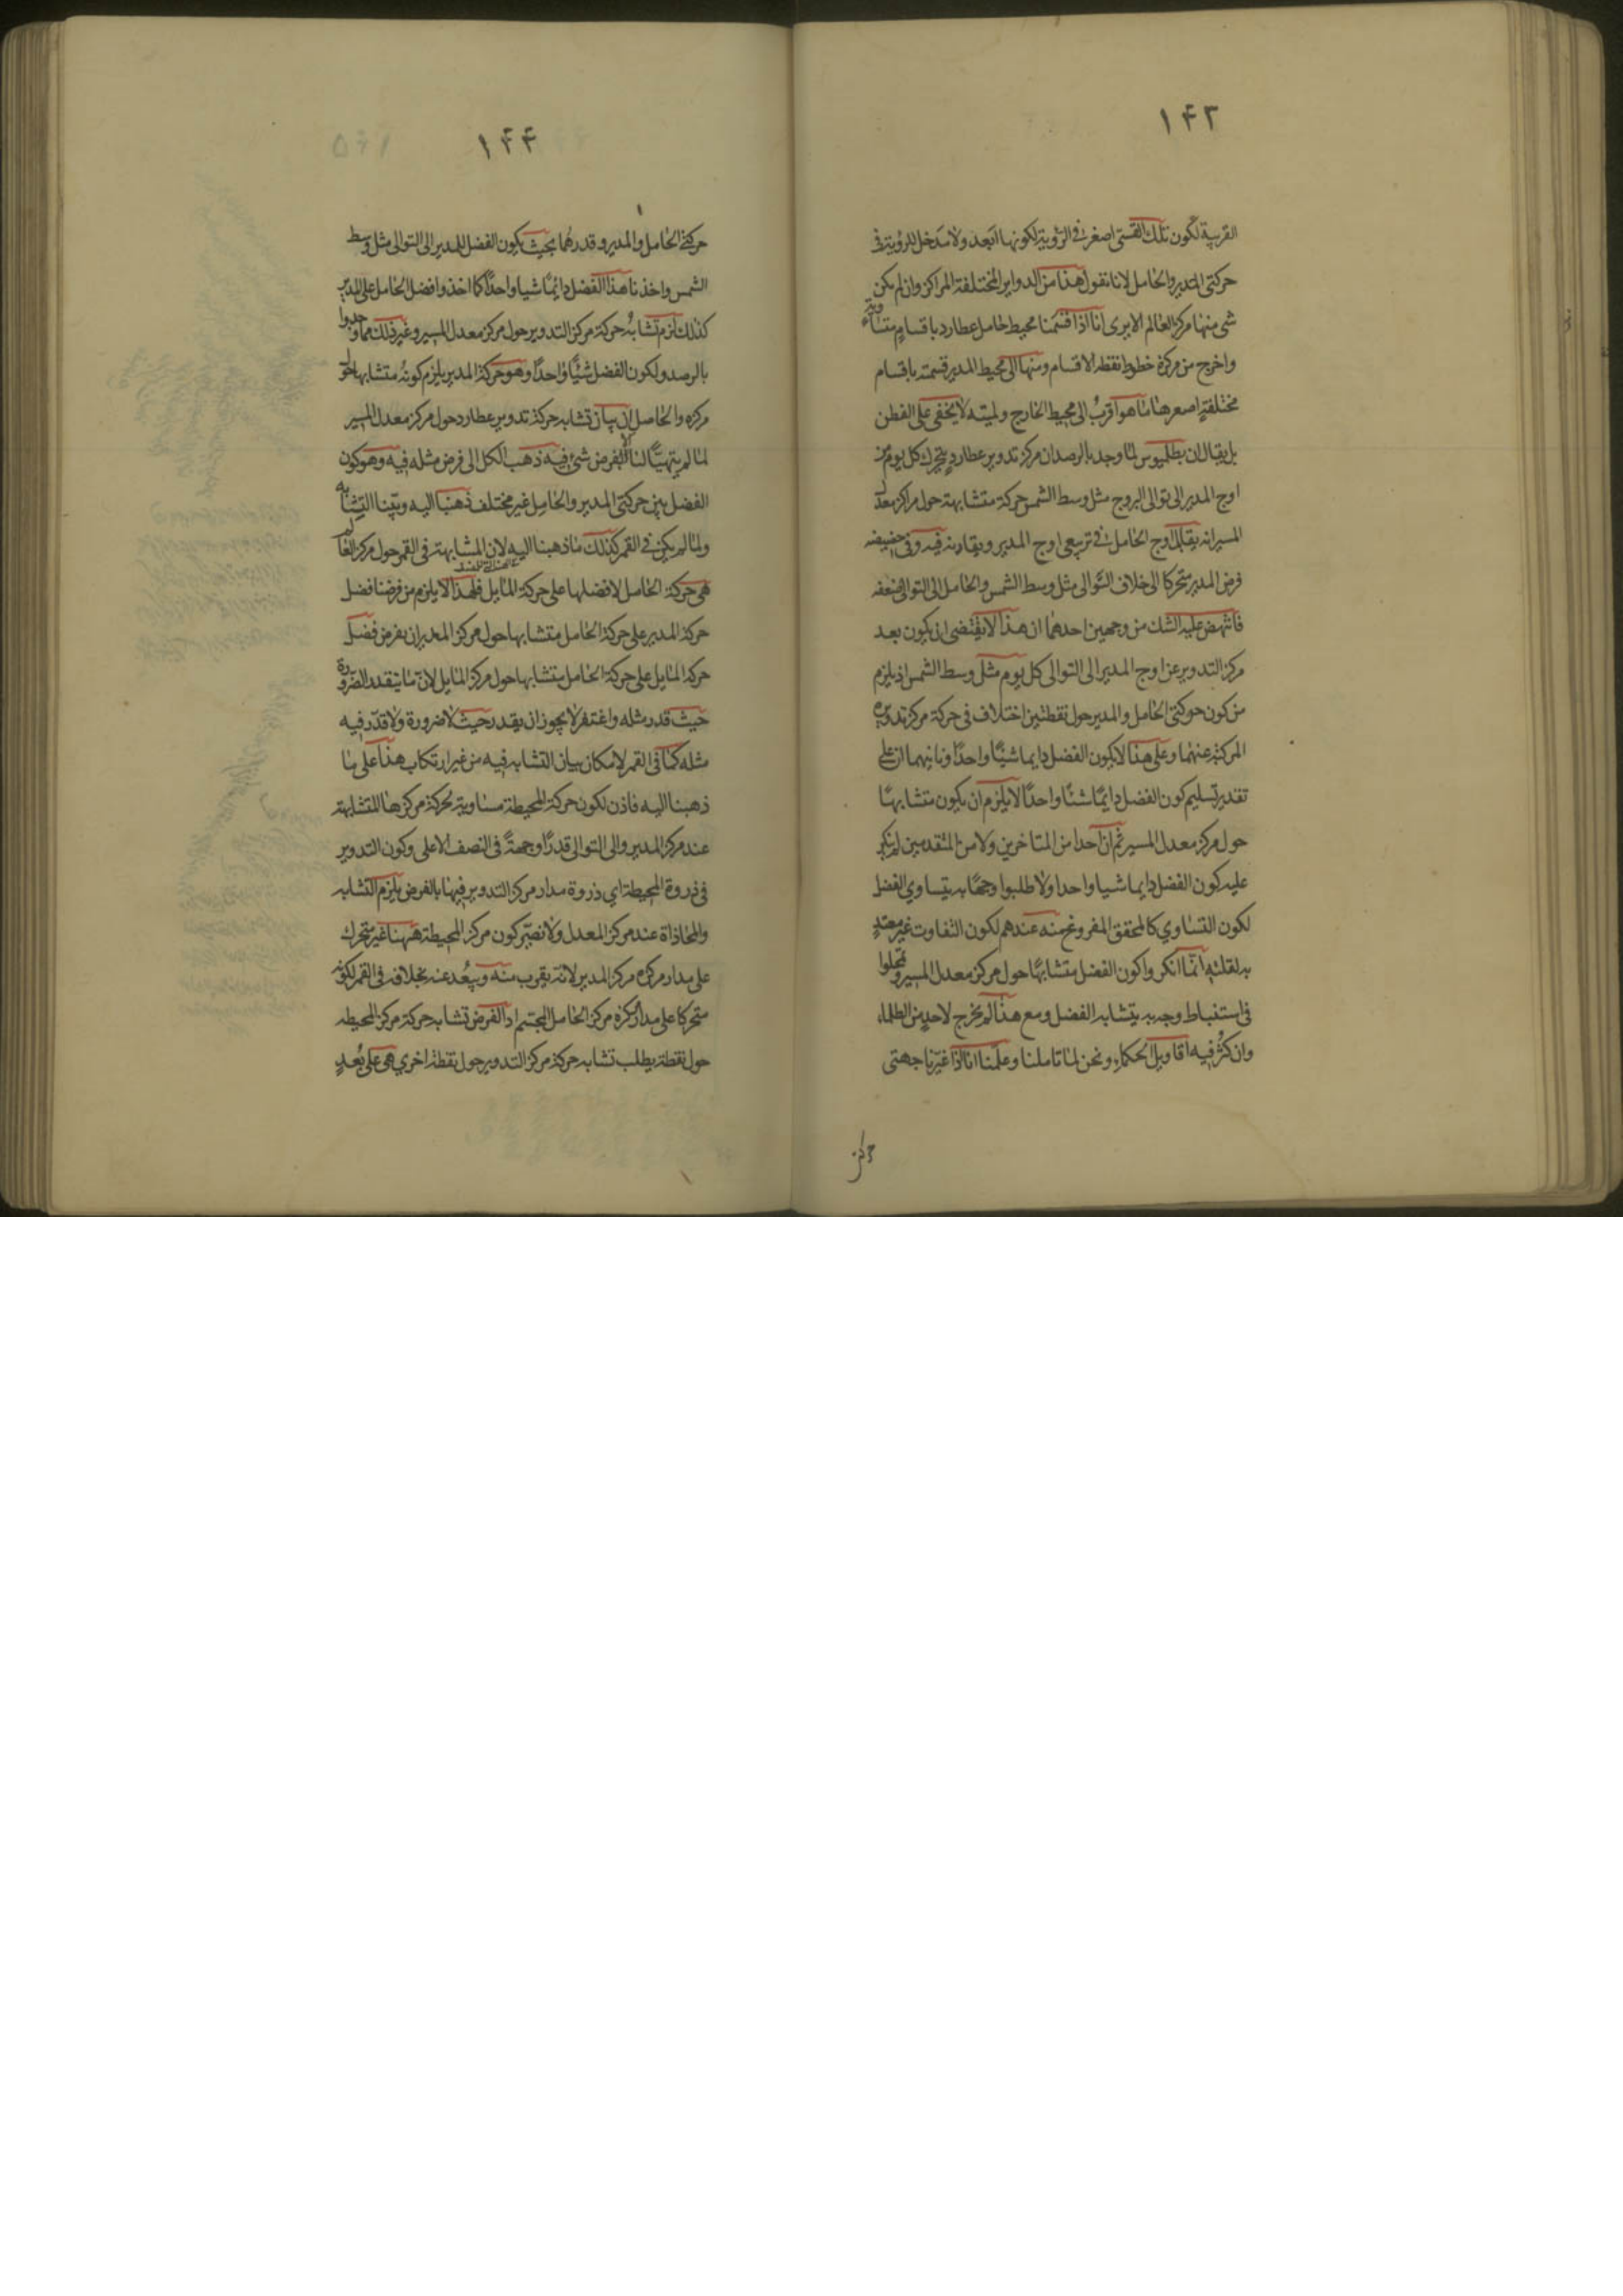 ١٤٣
القريبة لكون تلك القسى اصغر فى الرؤية لكونها ابعد ولا مدخل للرؤية فى
حركتى المدير والحامل لانا نقول هذا من الدواير المختلفة المراكز وان لم يكن
شئ منها مركز العالم الا يرى انا اذا قسمنا محيط حامل عطارد باقسام متساوية
واخرج من مركزه خطوط نقطه الاقسام ومنها الى محيط المدير قسمته باقسام
مختلفة اصغرها ما هو اقرب الى محيط الخارج ولميته لا يخفى على الفطن
بل يقال ان بطلميوس لما وجد بالرصد ان مركز تدوير عطارد يتحرك كل يوم من
اوج المدير الى توالى البروج مثل وسط الشمس حركة متشابهة حول مراكز معدل
المسير انه يقابل اوج الحامل فى تربيعى اوج المدير ويقارنه فيه وفى حضيضه
فرض المدير متحركا الى خلاف التوالى مثل وسط الشمس والحامل الى التوالى ضعفه
فانتهض عليه الشك من وجهين احدهما ان هذا لا يقتضى ان يكون بعد
مركز التدوير عن اوج المدير الى التوالى كل يوم مثل وسط الشمس اذ يلزم
من كون حركتى الحامل والمدير حول نقطتين اختلاف فى حركة مركز تدويره
المركبة عنهما وعلى هذا لا يكون الفضل دايما شيئا واحدا وثانيهما ان على
تقدير تسليم كون الفضل دايما شيئا واحدا لا يلزم ان يكون متشابها
حول مركز معدل المسير ثم ان احدا من المتاخرين ولا من المتقدمين لم ينكر
عليه كون الفضل دايما شيا واحدا ولا طلبوا وجها به يتساوي الفضل
لكون التساوي كالمحقق المفروغ منه عندهم لكون التفاوت غير معتد
به لقلته انما انكروا كون الفضل متشابها حول مركز معدل المسير وتمحلوا
فى استنباط وجه به يتشابه الفضل ومع هذا لم يخرج لاحد من الظلماء
وان كثر فيه اقاويل الحكماء ونحن لما تاملنا وعلمنا انا اذا غيرنا جهتى
١٤٤
حركتى الحامل والمدير وقدرهما بحيث يكون الفضل للمدير الى التوالى مثل وسط
الشمس واخذنا هذا الفضل دايما شيا واحدا كما اخذوا فضل الحامل على المدير
كذلك لزم تشابه حركة مركز التدوير حول مركز معدل المسير وغير ذلك مما وجدوا
بالرصد ولكون الفضل شيئا واحدا وهو حركة المدير يلزم كونه متشابها حول
مركزه والحاصل ان بيان تشابه حركة تدوير عطارد حول مركز معدل المسير
لما لم يتهيا لنا الا بفرض شئ فيه ذهب الكل الى فرض مثله فيه وهو كون
الفضل بين حركتى المدير والحامل غير مختلف ذهبنا اليه وبينا التشابه
ولما لم يكن فى القمر كذلك ما ذهبنا اليه لان المشابهة فى القمر حول مركز العالم
هى حركة الحامل لا فضلها على حركة المايل فلهذا لا يلزم من فرضنا فضل
حركة المدير على حركة الحامل متشابها حول مركز المدير ان يفرض فضل
حركة المايل على حركة الحامل متشابها حول مركز المايل لان ما يتقدر الضرورة
حيث قدر مثله واغتفر لا يجوز ان يقدر حيث لا ضرورة ولا قدر فيه
مثله كما فى القمر لامكان بيان التشابه فيه من غير ارتكاب هذا على ما
ذهبنا اليه فاذن لكون حركة المحيطة مساوية لحركة مركزها المتشابهة
عند مركز المدير والى التوالى قدرا وجهة فى النصف الاعلى وكون التدوير
فى ذروة المحيطة اي ذروة مدار مركز التدوير فيها بالفرض يلزم التشابه
والمحاذاة عند مركز المعدل ولا نصير كون مركز المحيطة ههنا غير متحرك
على مدار مركزه مركز المدير لانه يقرب منه ويبعد عنه بخلافه فى القمر لكونه
متحركا على مدار كره مركز الحامل المجسم اذ الفرض تشابه حركة مركز المحيطه
حول نقطة يطلب تشابه حركة مركز التدوير حول نقطة اخري هى على بعد